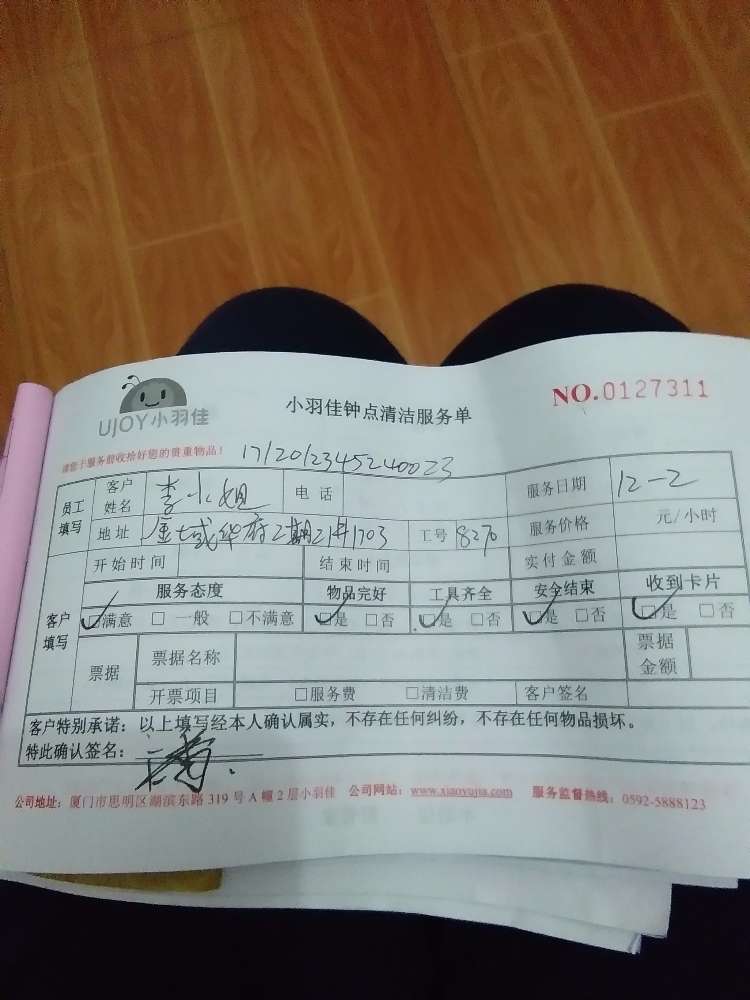 UJOY小羽佳
小羽佳钟点清洁服务单
NO.0127311
请您于服务前收拾好您的贵重物品!
1712012345240023
员工填写 客户姓名 李小姐 电话 服务日期 12-2
地址 金域华府二期21#1703 工号 8270 服务价格 元/小时
客户填写 开始时间 结束时间 实付金额
服务态度 物品完好 工具齐全 安全结束 收到卡片
☑满意 □一般 □不满意 ☑是 □否 ☑是 □否 ☑是 □否 ☑是 □否
票据 票据名称 票据金额
开票项目 □服务费 □清洁费 客户签名
客户特别承诺:以上填写经本人确认属实,不存在任何纠纷,不存在任何物品损坏。
特此确认签名:
公司地址:厦门市思明区湖滨东路319号A幢2层小羽佳 公司网站:www.xiaoyujia.com 服务监督热线:0592-5888123